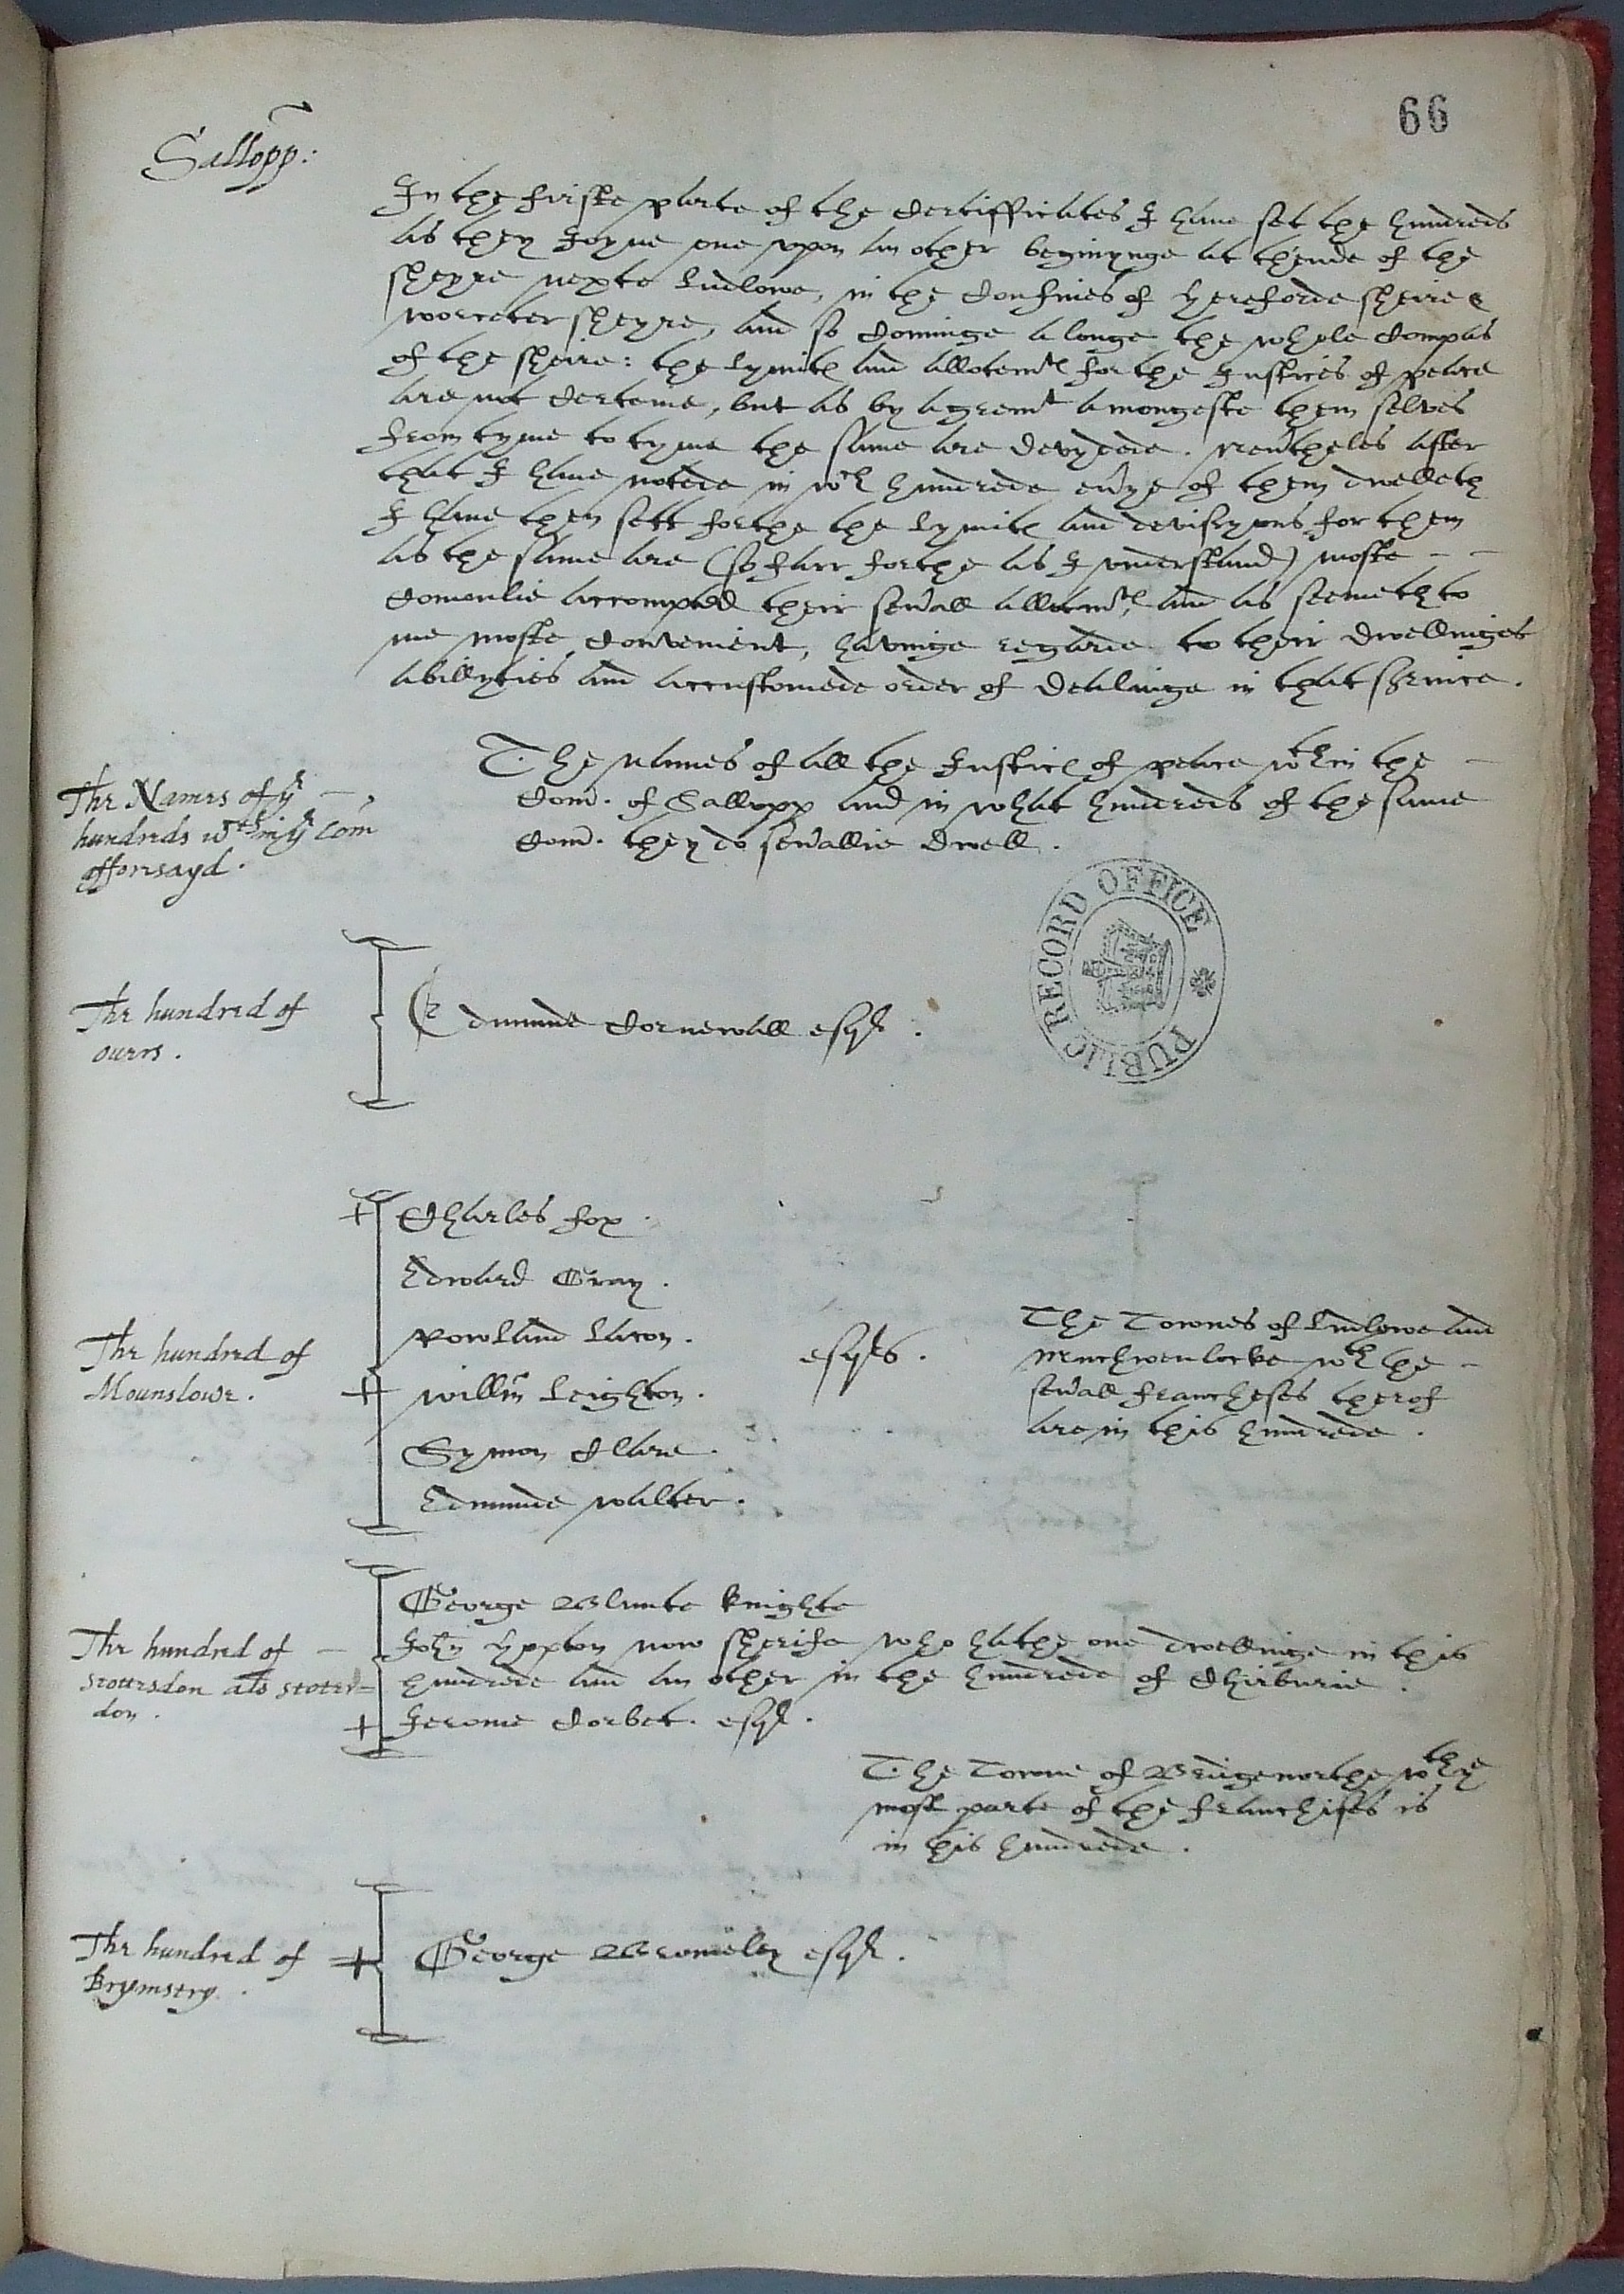 66
Sallopp:
In the firste parte of the Certifficates I have set the hundreds
as they Joyne one vpon an other beginynge at thende of the
sheyre nexte Ludlowe, in the Confines of hereforde sheire &
worceter sheyre, and so Cominge alonge the whole Compas
of the sheire: the lymites and allotemtes for the Justices of peace
are not Certeine, but as by agremt amongeste them selves
from tyme to tyme the same are devydede. neutheles after
that I have notede in wch hundrede euye of them dwelleth
I have then sett forthe the lymites and devisyons for them
as the same are (so farr forthe as I vnderstand) moste - -
Comonlie accompted their seuall allotemtes, and as seemeth to
me moste Convenient, havinge regarde to their dwellinges
abillyties and accustomede order of dealinge in that service.
The Names of ye
hundreds wthin ye Com
afforesayd.
The names of all the Justices of peace wthin the -
Com. of Sallopp and in what hundreds of the same
Com. they do seuallie dwell.
PUBLIC RECORD OFFICE
The hundred of
ouers.
Edmunde Cornewall esqr.
+ Charles fox.
Edward Gray.
Rowland Lacon.
The hundred of
Mounslowe.
+ willm Leighton.
esqrs.
Symon Clare.
Edmunde walter.
The Townes of Ludlowe and
Muchwenlocke wth the -
seuall francheses therof
are in this hundrede.
The hundred of -
stottersdon als stoterd=
don.
George Blunte knighte
John hopton now sherife who hathe one dwellinge in this
hundrede and an other in the hundrede of Chirburie.
+ Jerome Corbet. esqr.
The Towne of Bridgenorthe wth ye
most parte of the franchises is
in this hundrede.
The hundred of
Brymstry.
+ George Bromeley esqr.